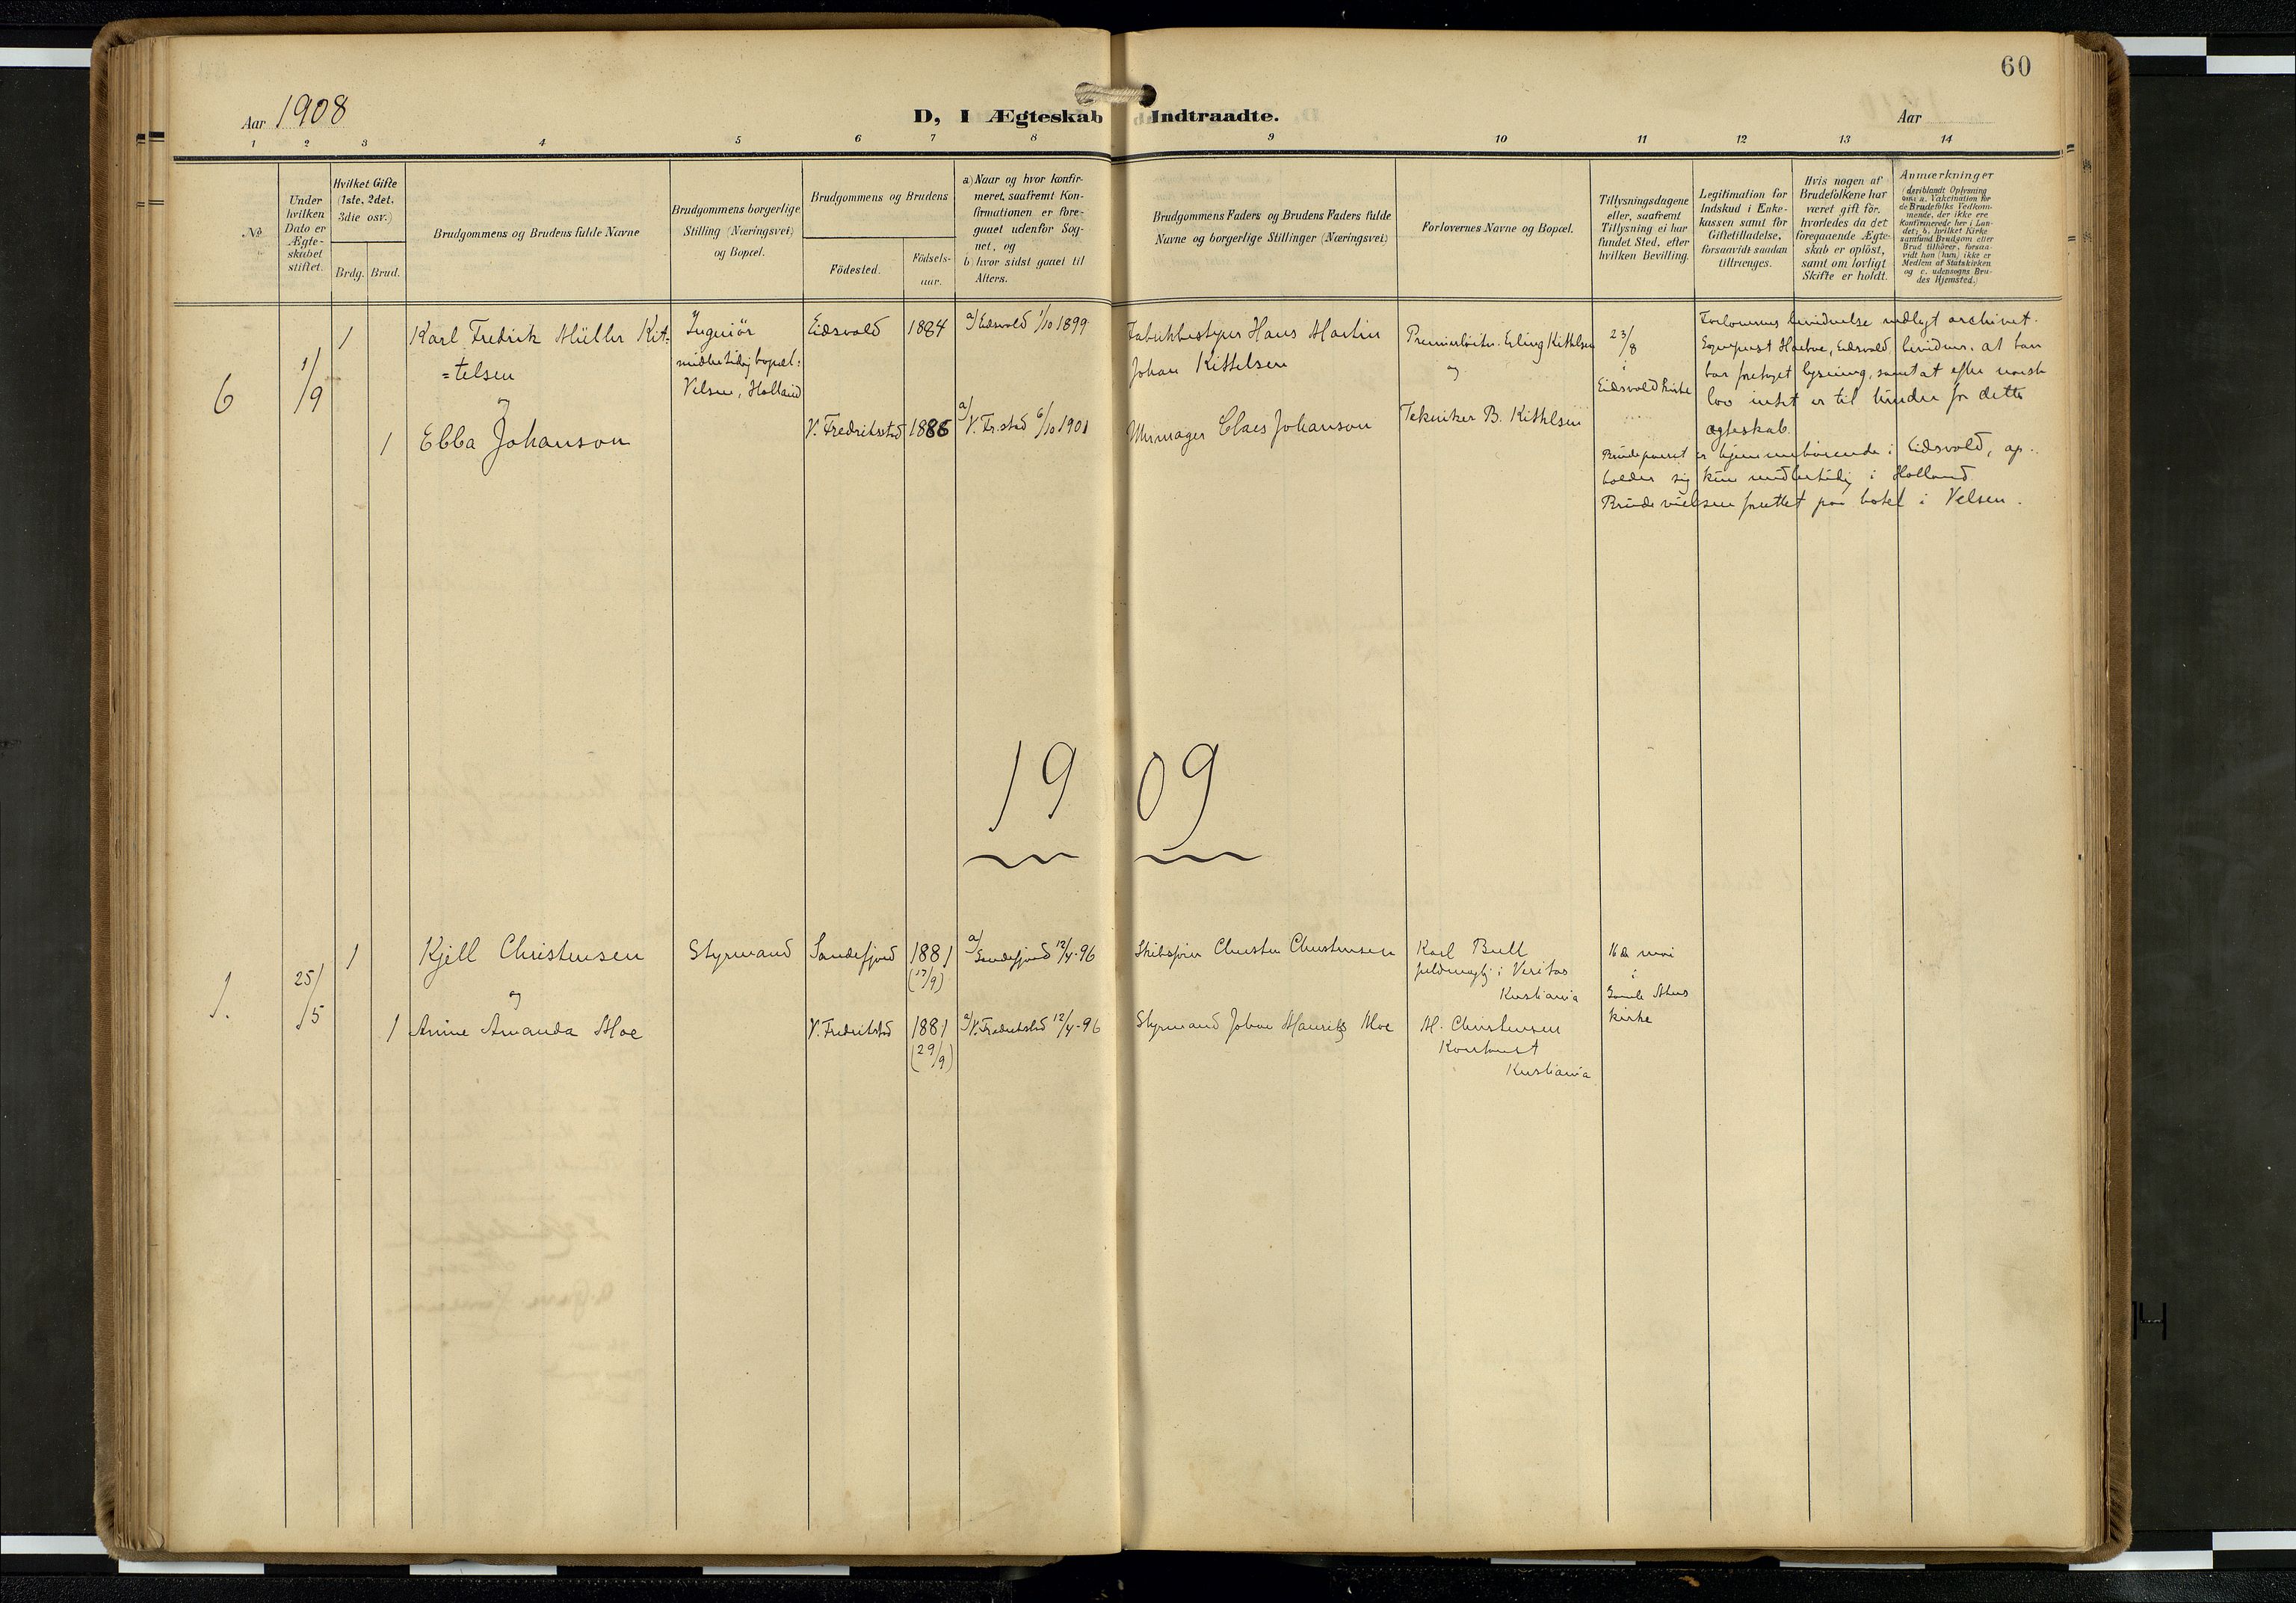 60
Aar 1908
D, I Ægteskab Indtraadte.
Aar
1 2 3 4 5 6 7 8 9 10 11 12 13 14
No
Under hvilken Dato er Ægte-skabet stiftet.
Hvilket Gifte (1ste, 2det. 3die osv.)
Brdg. Brud.
Brudgommens og Brudens fulde Navne
Brudgommens borgerlige Stilling (Næringsvei) og Bopæl.
Brudgommens og Brudens
Födested.
Födsels-aar.
a) Naar og hvor konfir-
meret, saafremt Kon-
firmationen er fore-
gaaet udenfor Sog-
net, og
b) hvor sidst gaaet til
Alters.
Brudgommens Faders og Brudens Faders fulde
Navne og borgerlige Stillinger (Næringsvei)
Forlovernes Navne og Bopæl.
Tillysningsdagene
eller, saafremt
Tillysning ei har
fundet Sted, efter
hvilken Bevilling.
Legitimation for
Indskud i Enke-
kassen samt for
Giftetilladelse,
forsaavidt saadan
tiltrænges.
Hvis nogen af
Brudefolkene har
været gift för,
hvorledes da det
foregaaende Ægte-
skab er oplöst,
samt om lovligt
Skifte er holdt.
Anmærkninger
(deriblandt Oplysning
om: a. Vakcination for
de Brudefolks Vedkom-
mende, der ikke ere
konfirmerede her i Lan-
det; b. hvilket Kirke
samfund Brudgom eller
Brud tilhörer, forsaa-
vidt han (hun) ikke er
Medlem af Statskirken
og c. udensogns Bru-
des Hjemsted.)
6
1/9
1
Karl Fredrik Müller Kit-
=telsen
og
1 Ebba Johanson
Ingeniör
midlertidig bopæl:
Velsen, Holland
Eidsvold 1884 a/ Eidsvold 1/10 1899
V. Fredriksstad 1886 a/ V. Fr.stad 6/10 1901
Fabrikbestyrer Hans Martin
Johan Kittelsen
Urmager Claes Johanson
Premierløitn. Erling Kittelsen
og
Tekniker B. Kittelsen
23/8
i
Eidsvold kirke
Forlovernes bevidnelse vedlagt archivet.
Sogneprest Hartvc, Eidsvold, bevidner, at han
har foretaget lysning, samt at efter norsk
lov intet er til hinder for dette
ægteskab.
Brudeparret er hjemmehörende i Eidsvold, op-
holder sig kun midlertidig i Holland.
Brudevielsen forrettet paa hotel i Velsen.
1909
1.
25/5
1 Kjell Christensen
og
1 Anine Amanda Moe
Styrmand
Sandefjord 1881
(17/9)
a/ Sandefjord 12/4-96
V. Fredrikstad 1881
(29/9)
a/ V. Fredrikstad 12/4-96
Skibsfører Christen Christensen
Styrmand Johan Mauritz Moe
Karl Bull
fuldmægtig i Veritas
Kristiania
M. Christensen
Kontorist
Kristiania
16de mai
i
Gamle Akers
kirke